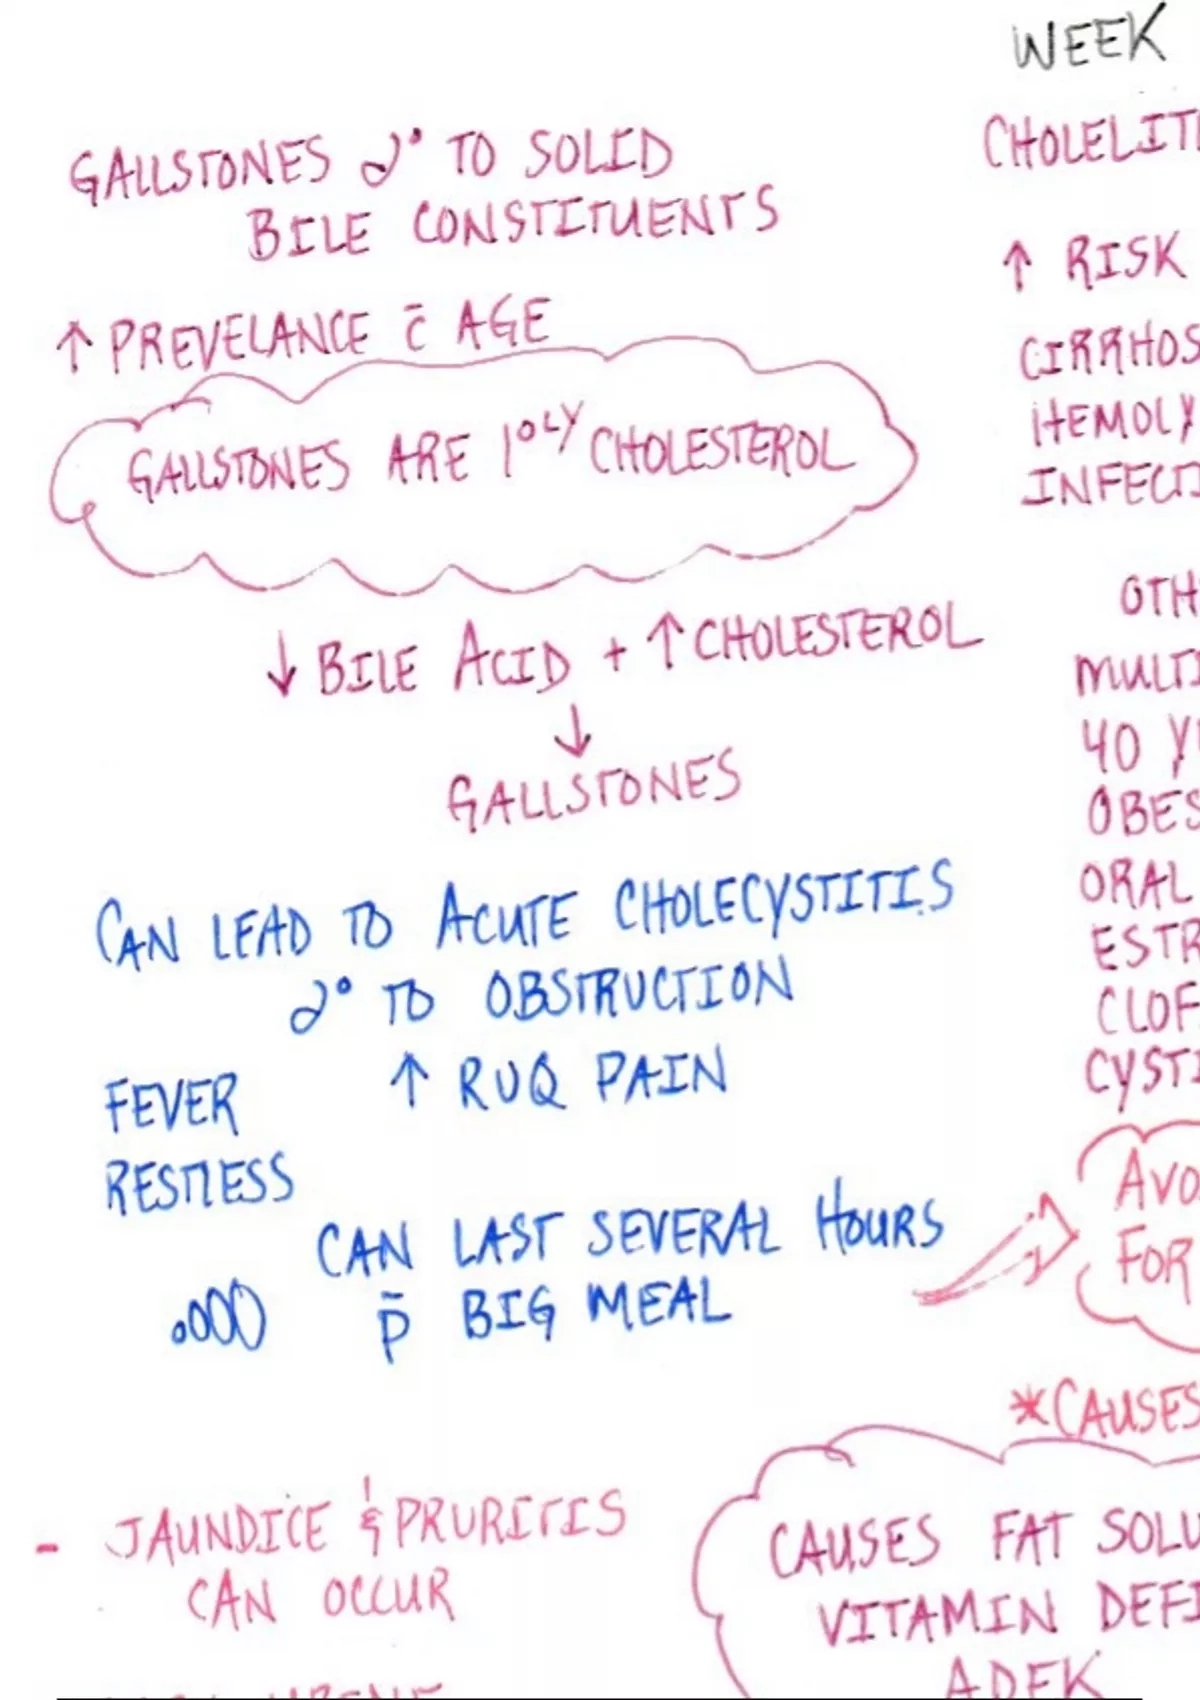 WEEK
GALLSTONES 2° TO SOLID
BILE CONSTITUENTS
↑ PREVELANCE c̄ AGE
GALLSTONES ARE 1°LY CHOLESTEROL
↓ BILE ACID + ↑ CHOLESTEROL
↓
GALLSTONES
CAN LEAD TO ACUTE CHOLECYSTITIS
2° TO OBSTRUCTION
↑ RUQ PAIN
FEVER
RESTLESS
CAN LAST SEVERAL HOURS
p̄ BIG MEAL
- JAUNDICE & PRURITIS
CAN OCCUR
CHOLELIT
↑ RISK
CIRRHOS
HEMOLY
INFECTI
OTH
MULTI
40 Y
OBES
ORAL
ESTR
CLOF
CYSTI
AVO
FOR
*CAUSES
CAUSES FAT SOLU
VITAMIN DEFI
ADEK